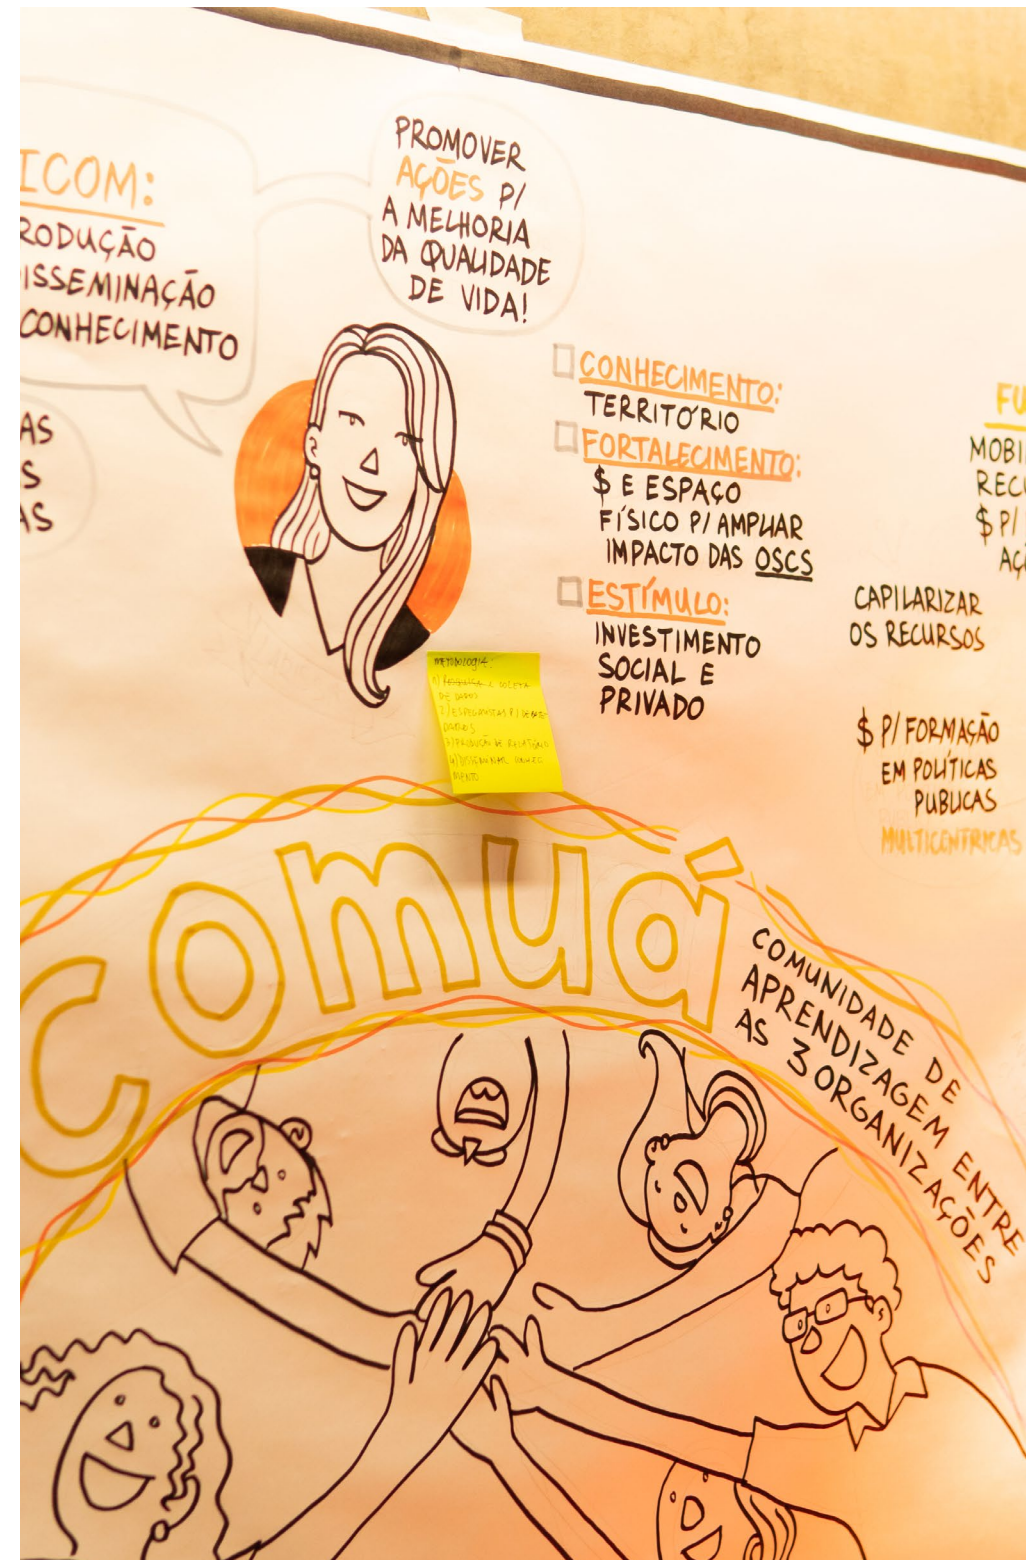 ICOM:
RODUÇÃO
ISSEMINAÇÃO
CONHECIMENTO
AS
S
AS
PROMOVER
AÇÕES P/
A MELHORIA
DA QUALIDADE
DE VIDA!
CONHECIMENTO:
TERRITÓRIO
FORTALECIMENTO:
$ E ESPAÇO
FÍSICO P/ AMPLIAR
IMPACTO DAS OSCS
ESTÍMULO:
INVESTIMENTO
SOCIAL E
PRIVADO
FU
MOBI
RECU
$ P/
AÇÕ
CAPILARIZAR
OS RECURSOS
$ P/ FORMAÇÃO
EM POLÍTICAS
PUBLICAS
MULTICENTRICAS
METODOLOGIA:
1) PESQUISA E COLETA
DE DADOS
2) ESPECIALISTAS P/
DADOS
3) PRODUÇÃO DE RELATÓRIO
4) DISSEMINAR CONHECI
MENTO
comuá
COMUNIDADE DE
APRENDIZAGEM ENTRE
AS 3 ORGANIZAÇÕES